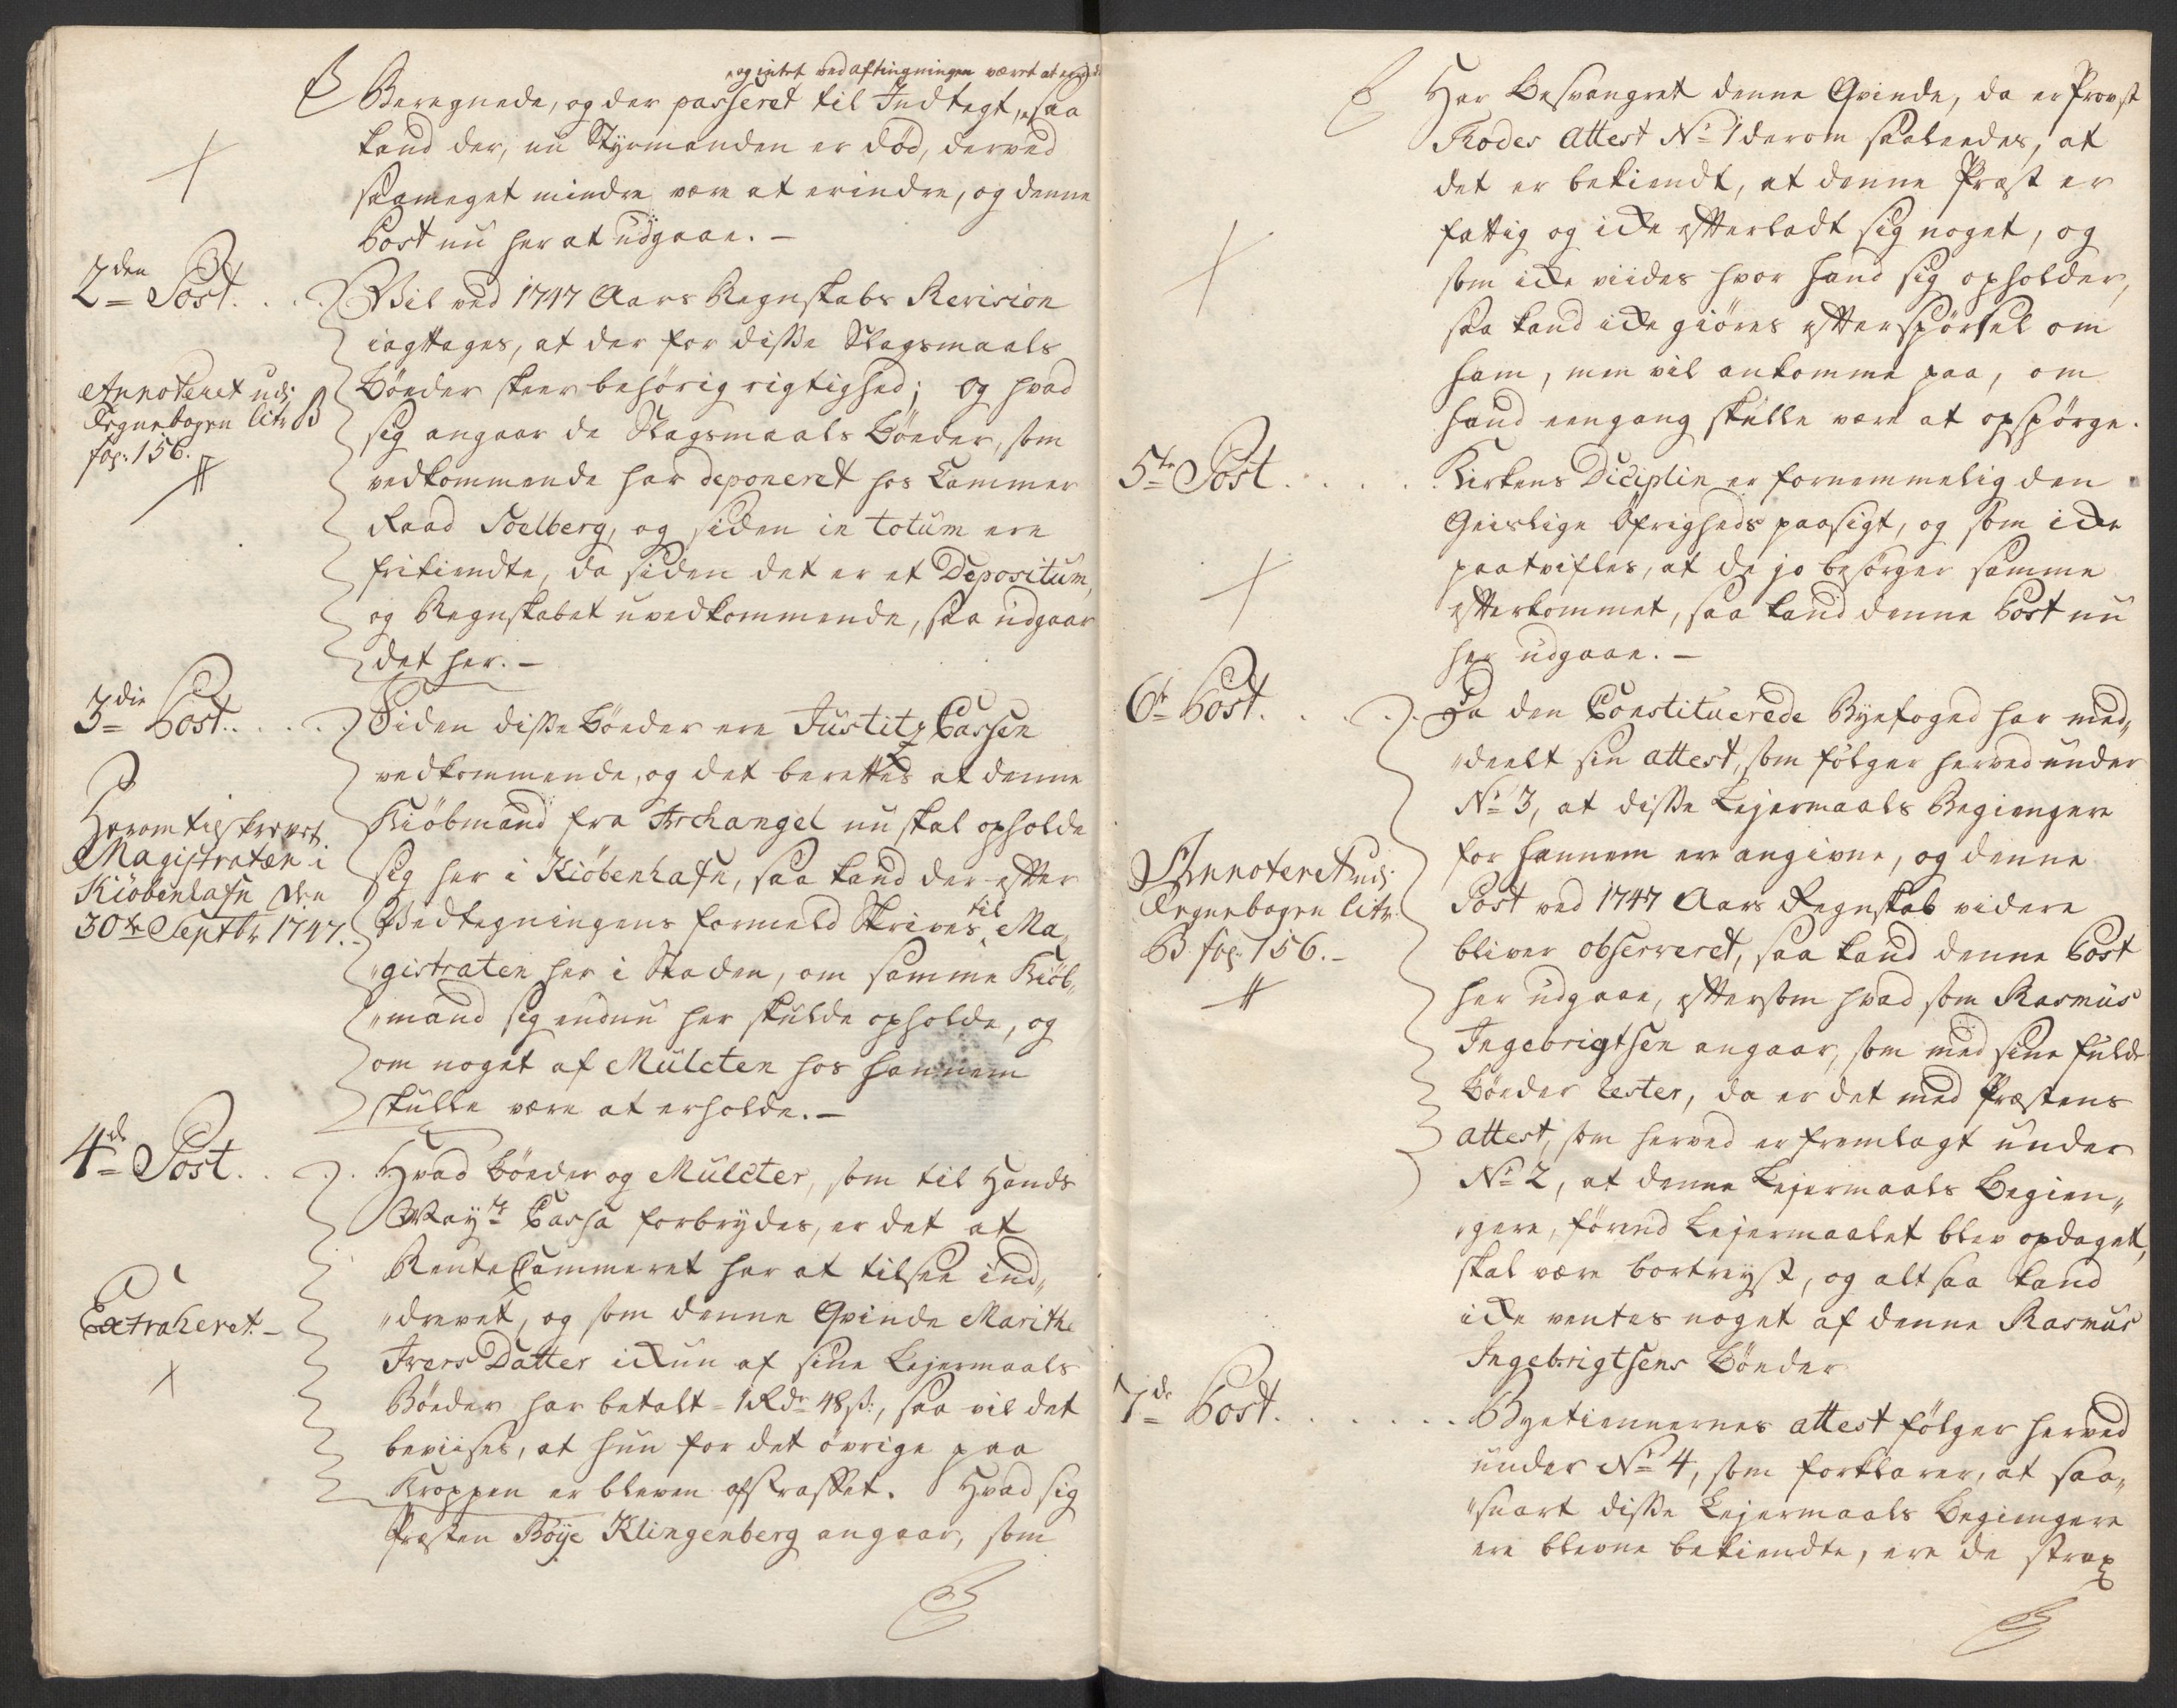 og intet ved aftingningen været at
Beregnede, og der passeret til Indtegt, saa
kand der, nu Styrmanden er död, derved
saameget mindre være at erindre, og denne
Post nu her at udgaae. –
2den Post. . . .
Vil ved 1747 Aars Regnskabs Revision
iagttages, at der for disse Slagsmaals
Annoteret udj
Tegnebogen litr B
fol: 156.
Böeder skeer behörig rigtighed; og hvad
sig angaar de Slagsmaals Böeder, som
vedkommende har deponeret hos Cammer
Raad Soelberg, og siden in totum ere
frikiendte, da siden det er et Depositum,
og Regnskabet uvedkommende, saa udgaar
det her. –
3die Post. . . .
Siden disse Böeder ere Justitz Cassen
vedkommende, og det berettes at denne
Kiöbmand fra Archangel nu skal opholde
Herom tilskrevet
Magistraten i
Kiöbenhafn den
30te Septbr 1747.
sig her i Kiöbenhafn, saa kand der efter
Vedtegningens formeld Skrives til Ma„
„gistraten her i Staden, om samme Kiöb„
„mand sig endnu her skulde opholde, og
om noget af Mulcten hos hannem
skulle være at erholde. –
4de Post. . . .
Hvad Böeder og Mulcter, som til Hands
Mayts Cassa forbrydes, er det at
RenteCammeret har at tilsee ind„
„drevet, og som denne Qvinde Marithe
Extraheret. –
Ivers Datter ickun af sine Lejermaals
Böeder har betalt = 1 Rdr 48 ß:, saa vil det
beviises, at hun for det övrige paa
Kroppen er bleven afstraffet. Hvad sig
Præsten Böye Klingenberg angaar, som
Har besvangret denne Qvinde, da er Provst
Rodes attest No 1 derom saaleedes, at
det er bekiendt, at denne Præst er
fattig og icke efterladt sig noget, og
som icke viides hvor hand sig opholder,
saa kand icke giöres efterspörsel om
ham, men vil ankomme paa, om
hand eengang skulle være at opspörge.
5te Post. . . . .
Kirkens Diciplin er fornemmelig den
Geistlige Öfrigheds paasigt, og som icke
paatvifles, at de jo besörger samme
efterkommet, saa kand denne Post nu
her udgaae. –
6te Post. . . . .
Da den Constituerede Byefoged har med„
„deelt sin attest, som fölger herved under
No 3, at disse Lejermaals Begiengere
for hannem ere angivne, og denne
Annoteret udj
Tegnebogen litr.
B. fol. 156. –
Post ved 1747 Aars Regnskab videre
bliver observeret, saa kand denne Post
her udgaae, eftersom hvad som Rasmus
Ingebrigtsen angaar, som med sine fulde
Böeder rester, da er det med Præstens
attest, som herved er fremlagt under
No 2, at denne Lejermaals Begien„
„gere, förend Lejermaalet blev opdaget,
skal være bortreyst, og altsaa kand
icke ventes noget af denne Rasmus
Ingebrigtsens Böeder
7de Post. . . . . . .
Byetiennernes attest fölger herved
under No 4, som forklarer, at saa„
„snart disse Lejermaals Begiengere
ere blevne bekiendte, ere de strax